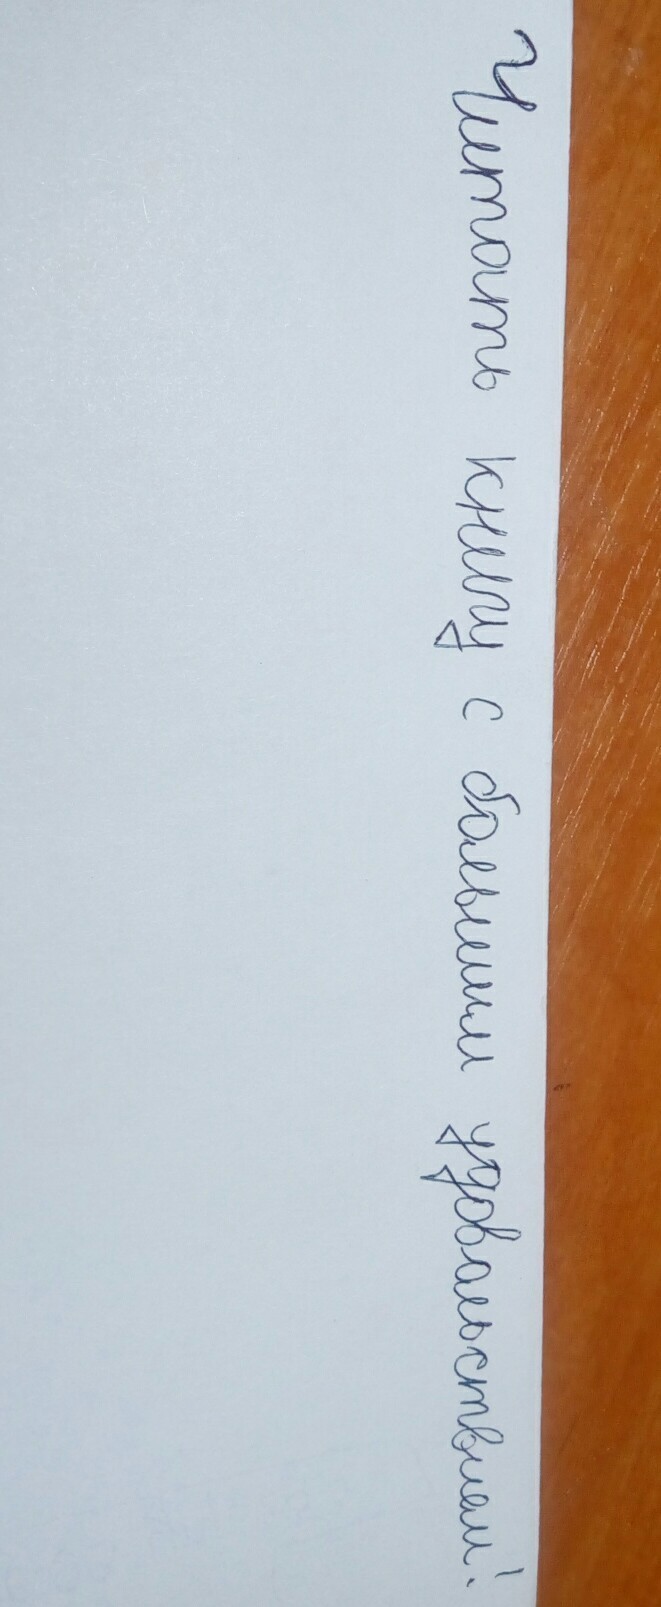 Читать книгу с большим удовальствием!